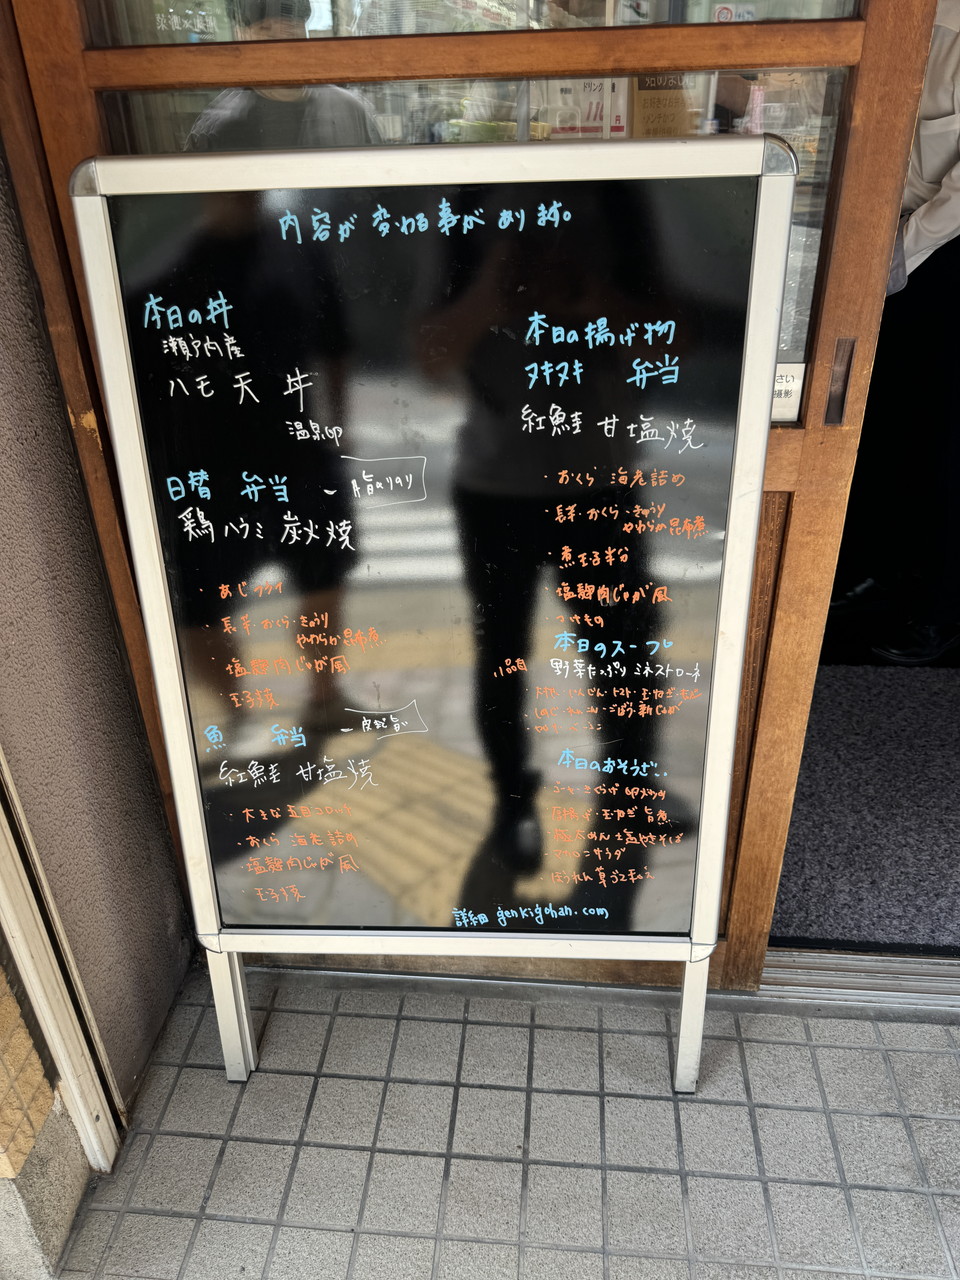 内容が変わる事があります。
本日の丼
瀬戸内産
ハモ天丼
温泉卵
日替 弁当
鶏ハラミ 炭火焼
・あじフライ
・長芋・おくら・きゅうり
やわらか昆布煮
・塩麹肉じゃが風
・玉子焼
魚 弁当
紅鮭 甘塩焼
五目コロッケ
・おくら 海老詰め
・塩麹肉じゃが風
・玉子焼
本日の揚げ物
ヌキヌキ 弁当
紅鮭 甘塩焼
・おくら 海老詰め
・長芋・おくら・きゅうり
やわらか昆布煮
・煮玉子半分
・塩麹肉じゃが風
・つけもの
本日のスープ
野菜たっぷり ミネストローネ
・にんじん・トマト・玉ねぎ
ごぼう・新じゃが
本日のおそうざい
玉ねぎ 旨煮
・極太めん 塩やきそば
・マカロニサラダ
・ほうれん草ごま和え
詳細 genkigohan.com